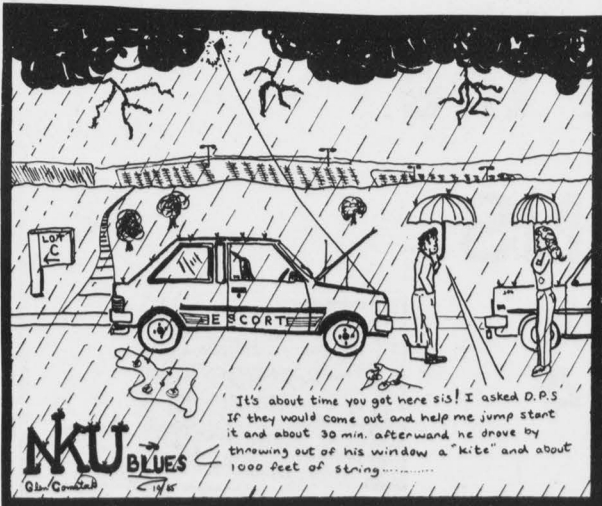 LOT
C
ESCORT
It's about time you got here sis! I asked D.P.S
If they would come out and help me jump start
it and about 30 min. afterward he drove by
throwing out of his window a "kite" and about
1000 feet of string............
NKU BLUES
Glen Comstock
10/85